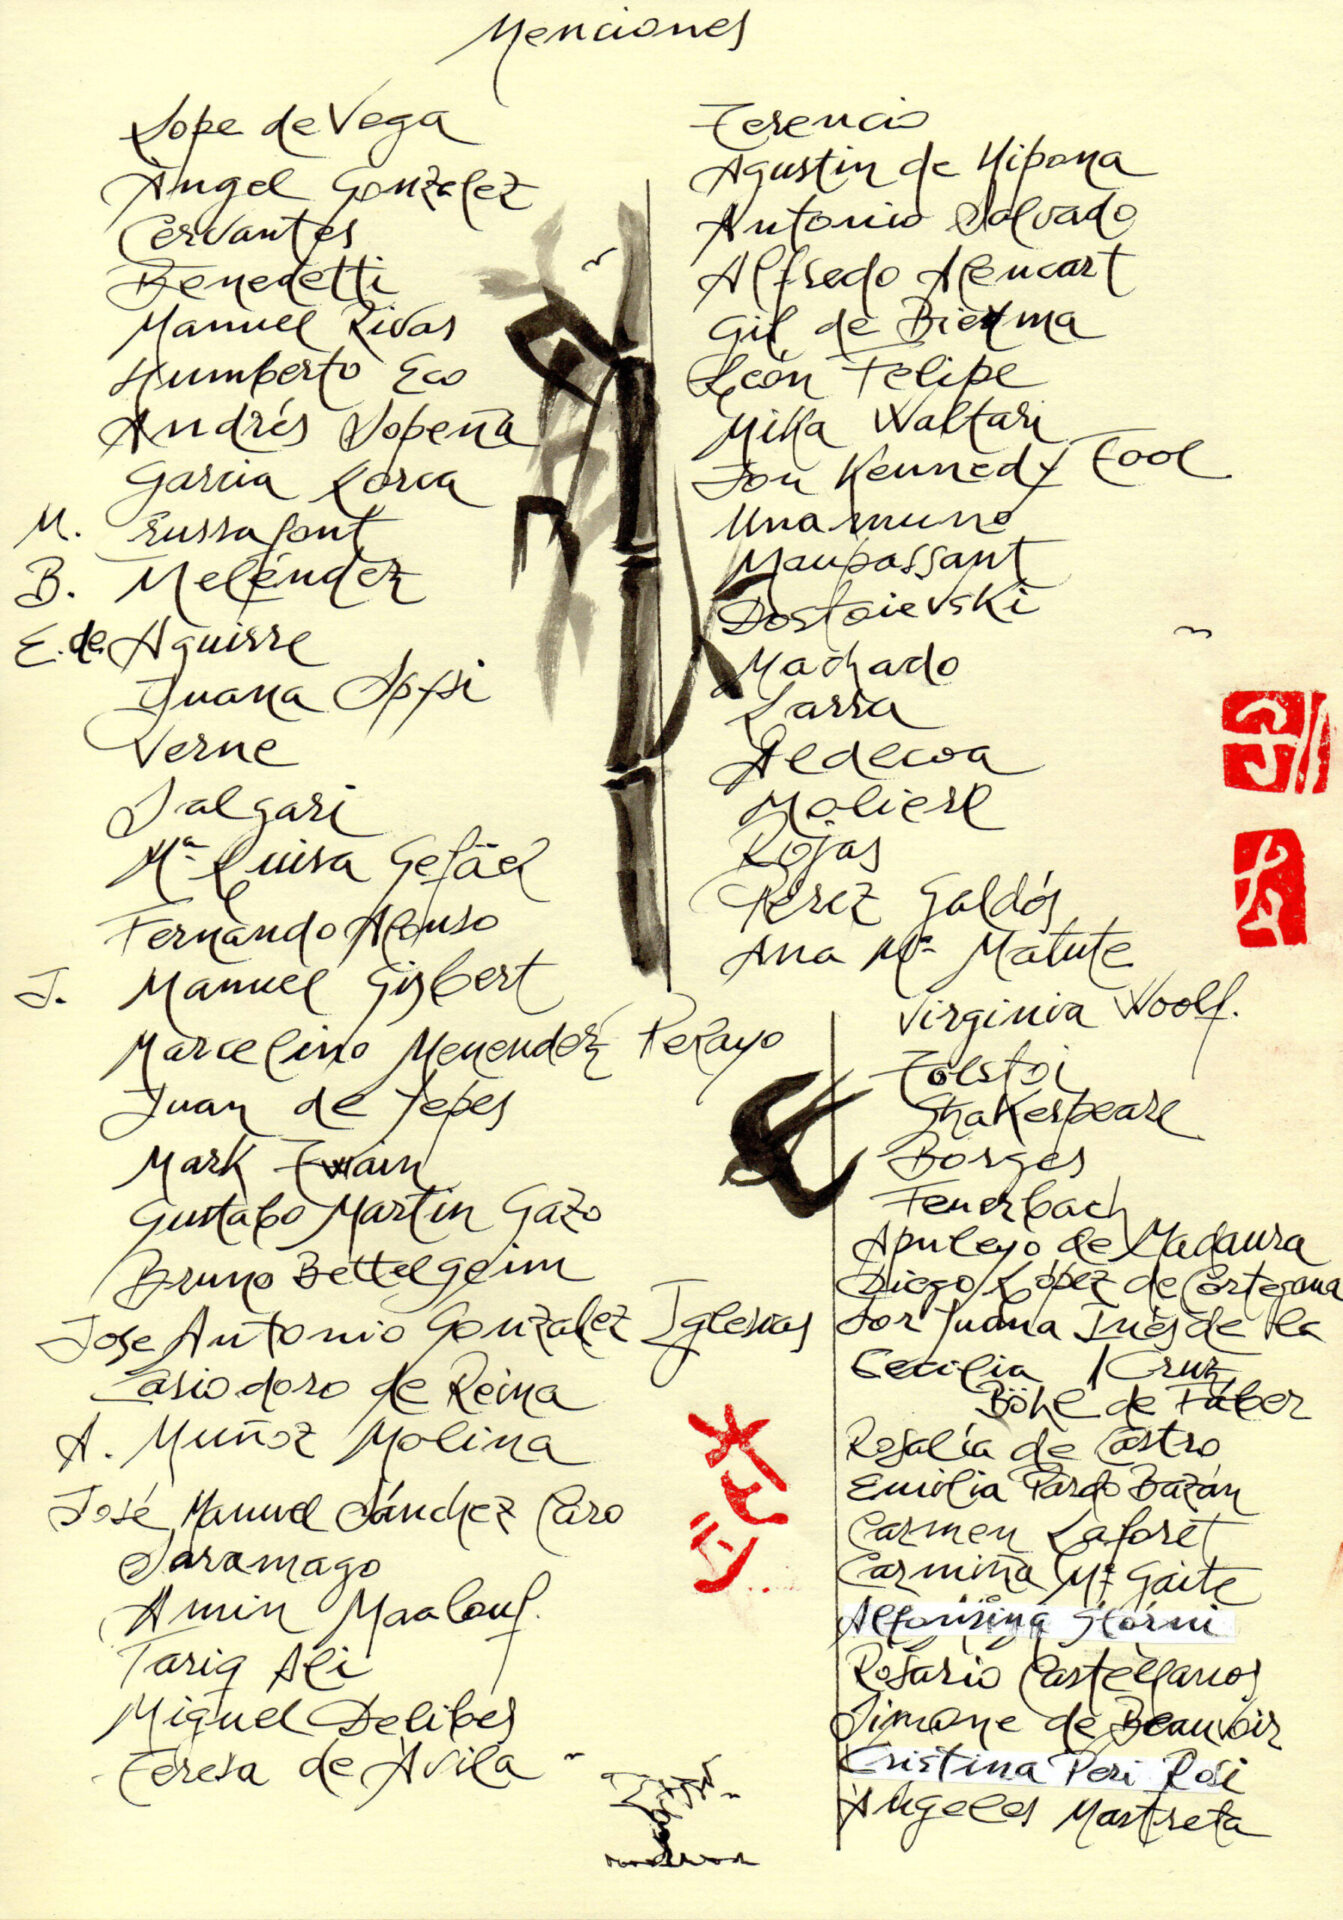 Menciones
Lope de Vega
Angel Gonzalez
Cervantes
Benedetti
Manuel Rivas
Humberto Eco
Andrés Sopeña
Garcia Lorca
M. Eussafont
B. Meléndez
E. de Aguirre
Juana Spysi
Verne
Salgari
Mª Luisa Gefäel
Fernando Alonso
J. Manuel Gisbert
Marcelino Menendez Pelayo
Juan de Yepes
Mark Twain
Gustabo Martin Gazo
Bruno Bettelgeim
Jose Antonio Gonzalez Iglesias
Casiodoro de Reina
A. Muñoz Molina
José Manuel Sánchez Caro
Saramago
Amin Maalouf.
Tariq Ali
Miguel Delibes
Teresa de Avila
Terencio
Agustin de Hipona
Antonio Salvado
Alfredo Alencart
Gil de Biezma
León Felipe
Mika Waltari
Jon Kennedy Tool
Unamuno
Maupassant
Dostoievski
Machado
Larra
Aldecoa
Moliere
Rojas
Perez Galdós
Ana Mª Matute
Virginia Woolf.
Tolstoi
Shakespeare
Borges
Feuerbach
Apuleyo de Madaura
Diego López de Cortegana
Sor Juana Inés de la
Cruz
Cecilia
Böhl de Fáber
Rosalía de Castro
Emilia Pardo Bazán
Carmen Laforet
Carmiña Mª Gaite
Alfonsina Storni
Rosario Castellanos
Simone de Beauvoir
Cristina Peri Rosi
Angeles Mastreta